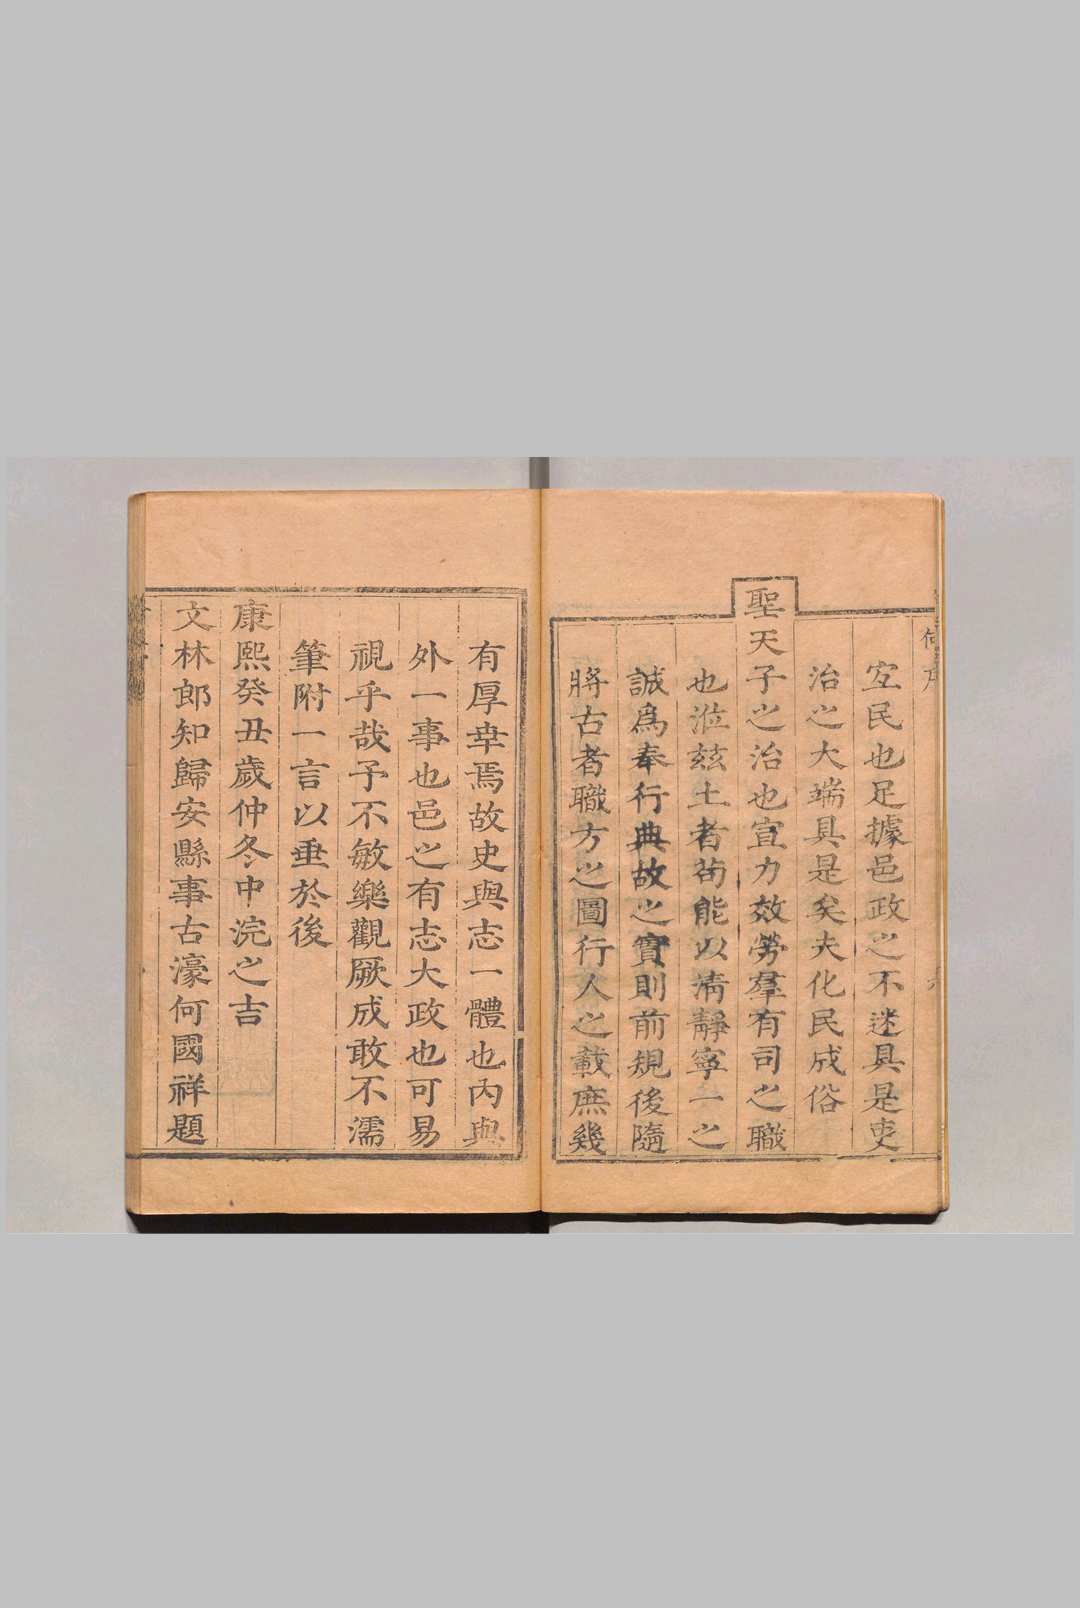 宐民也足據邑政之不迷具是吏
治之大端具是矣夫化民成俗
聖天子之治也宣力效勞羣有司之職
也涖茲土者茍能以清靜寧一之
誠爲奉行典故之實則前規後隨
將古者職方之圖行人之載庶幾
有厚幸焉故史與志一體也內與
外一事也邑之有志大政也可易
視乎哉予不敏樂觀厥成敢不濡
筆附一言以垂於後
康熙癸丑歲仲冬中浣之吉
文林郎知歸安縣事古濠何國祥題